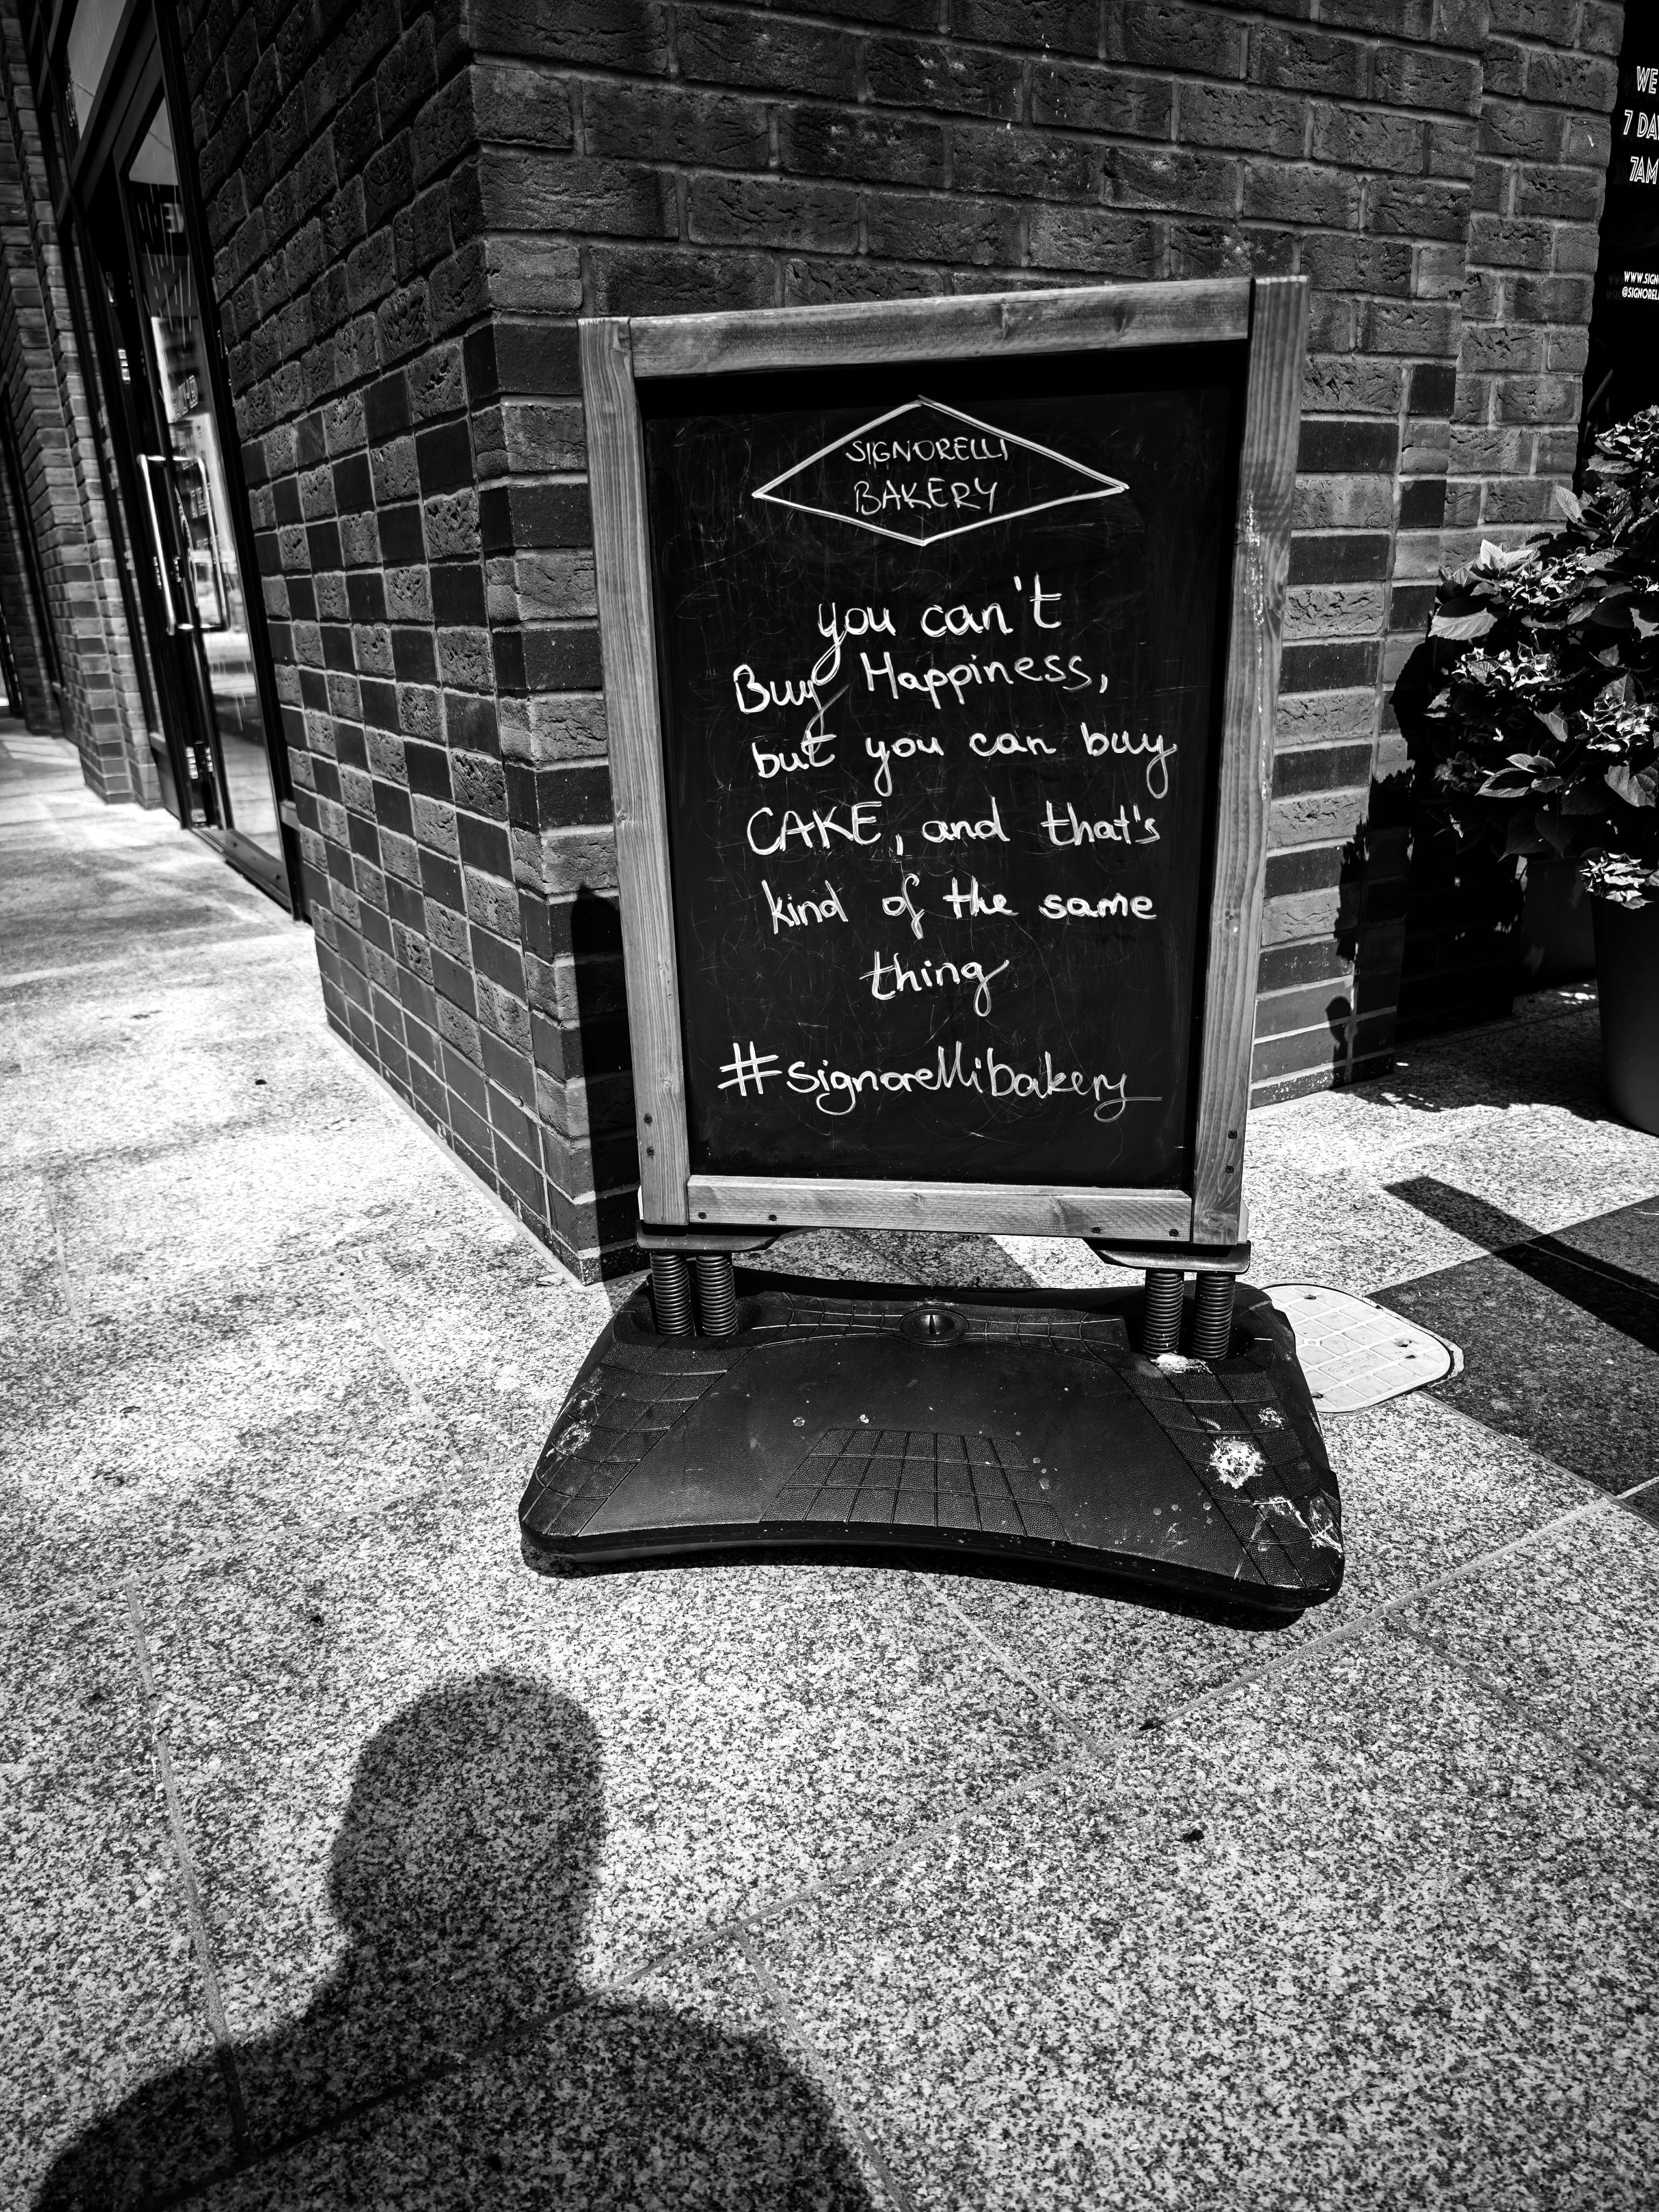 SIGNORELLI
BAKERY
you can't
Buy Happiness,
but you can buy
CAKE, and that's
kind of the same
thing
#signorellibakery
WE
7 DA
7AM
WWW.SIGN
@SIGNOREL